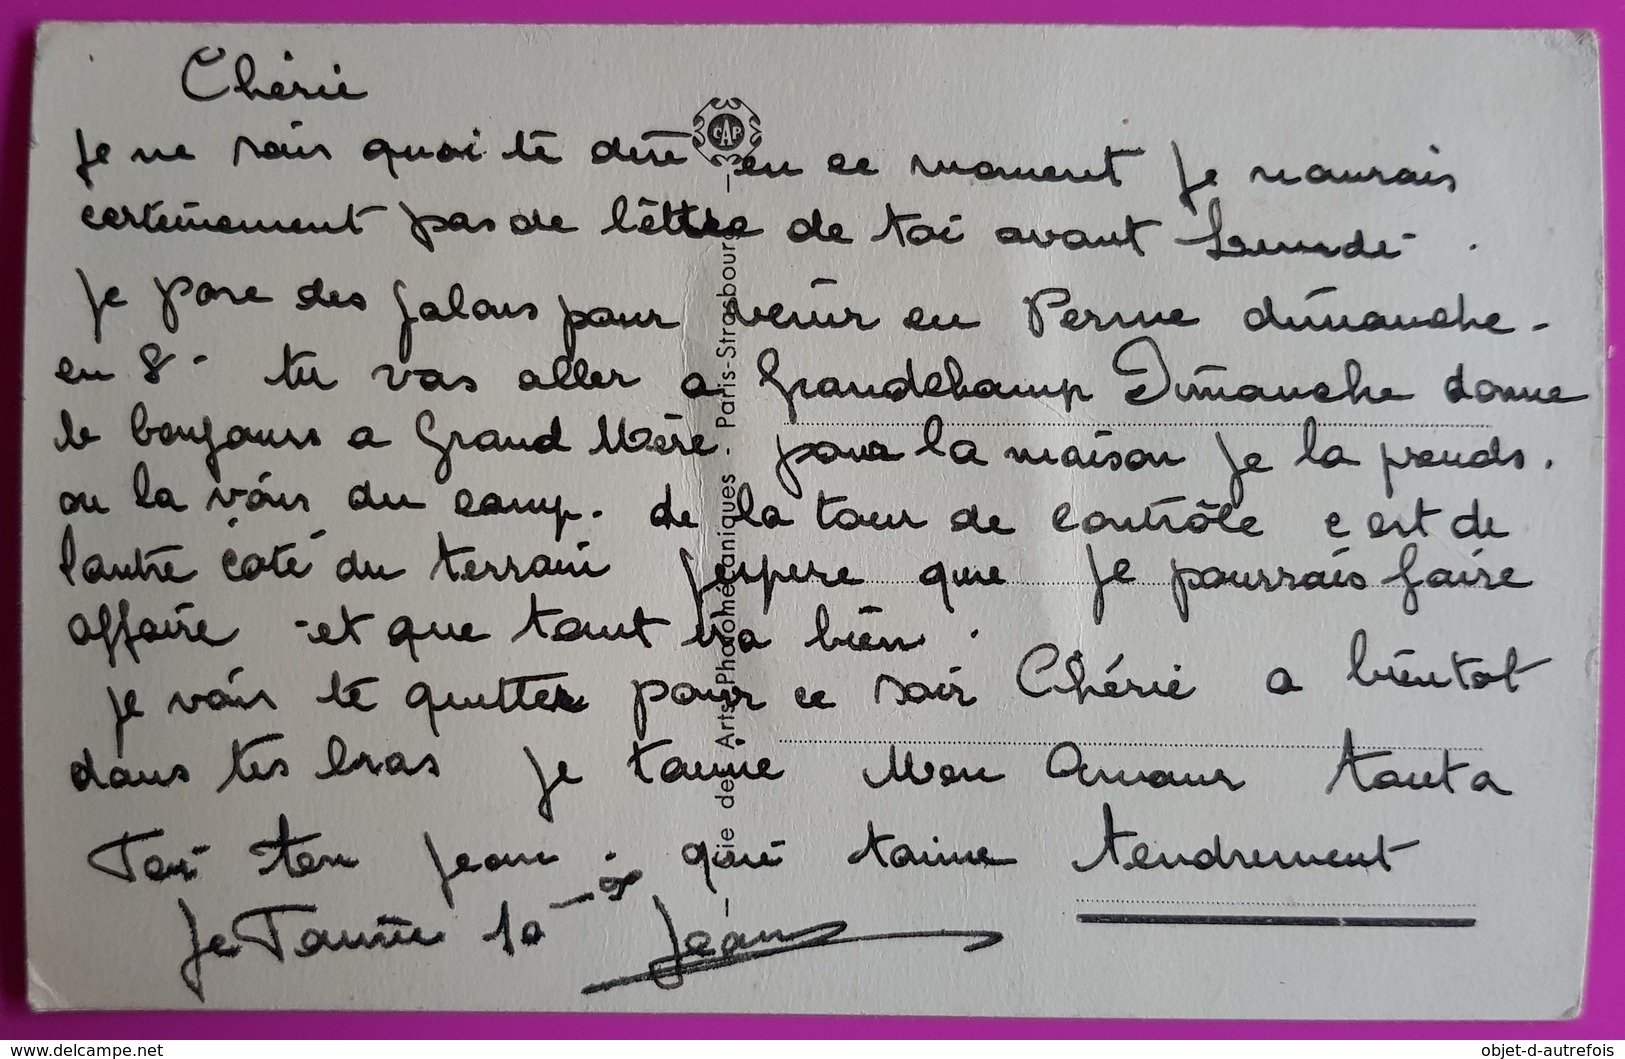 Chérie
Je ne sais quoi te dire en ce moment Je naurais
certeinement pas de lettre de toi avant Lundi.
Je pose des Jalons pour venir en Perme dimanche.
en 8. tu vas aller a Grandchamp Dimanche donne
le bonjours a Grand Mère. pour la maison Je la prends.
ou la vois du camp. de la tour de contrôle c est de
lautre coté du terrain Jespere que Je pourrais faire
affaire et que tout ira bien.
Je vais te quitter pour ce soir Chérie a bientot
dans tes bras Je taime Mon Amour tout a
Toi ton Jean. qui taime tendrement
Je Taime Jean
CAP
Cie des Arts Photomécaniques - Paris-Strasbourg
delcampe.net
objet-d-autrefois